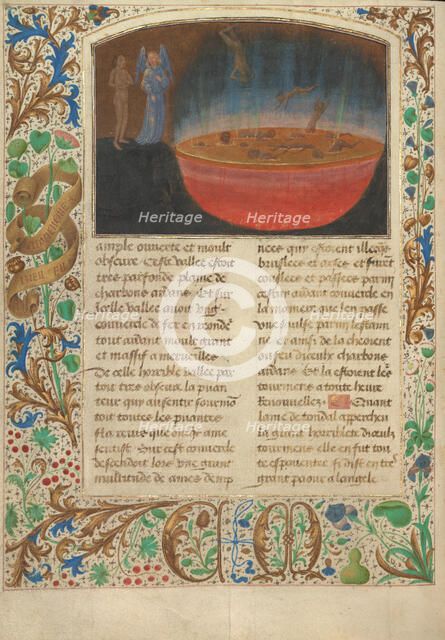 ample ouverte et moult
obscure Ceste vallee estoit
tres parfonde plaine de
charbons ardans Et sur
icelle vallee avoit ung
couvercle de fer en ronde
tout ardant moult grant
et massif a merveilles
De celle horrible vallee par
toit tres obscure la puan
teur qui
toit toutes les puantes
que onques ame
sentist Sur cest couvercle
descendoit lors une grant
multitude de ames demp
nees qui estoient illecques
bruslees et arses et furent
coulees et passees parmi
cestui ardant couvercle en
la maniere que on passe
une saulse parmi
ne et ainsi de la cheoient
ou feu diceulx charbons
ardans Et la estoient les
tourmens a toute heure
Renouvellez Quant
lame de tondal apperchu
la grant horriblete diceulx
tourmens elle en fut tou
te espouentee si dist en tres
grant paour a langele
C M
Heritage
Heritage
Heritage
Heritage
Heritage
Heritage
C